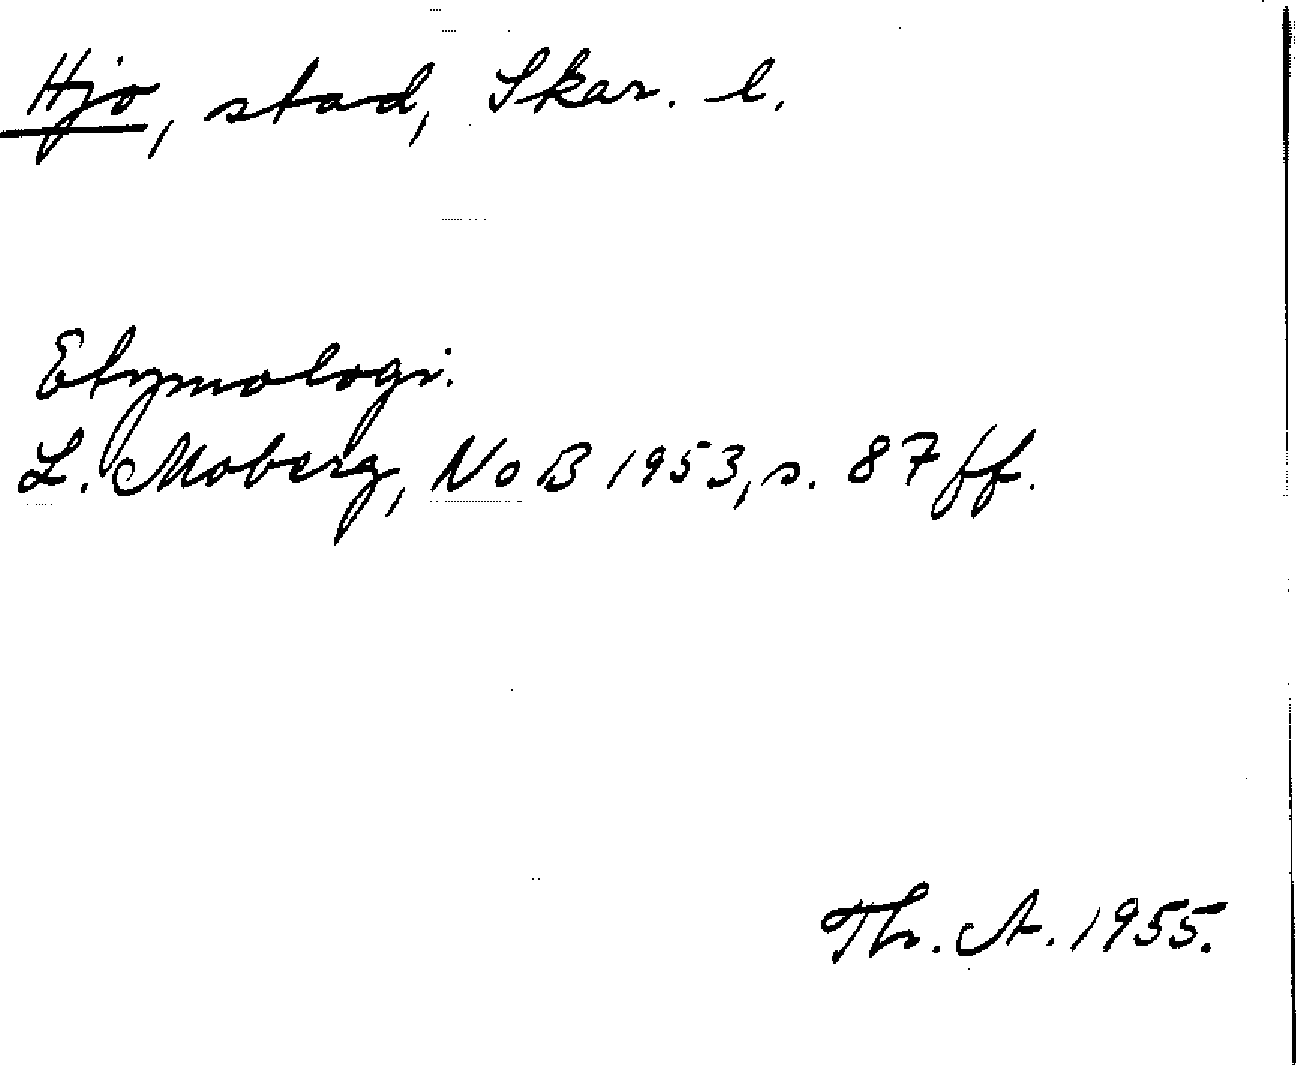 Hjo, stad, Skar. l.
Etymologi.
L. Moberg, NoB 1953, s. 87 ff.
Th. A. 1955.